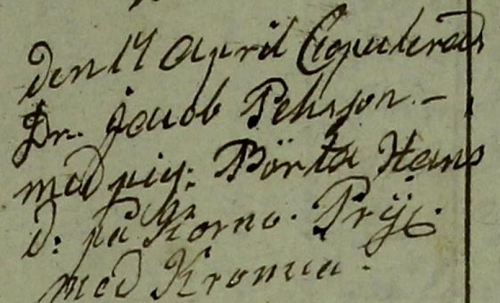 den 17 April Copulerads
Dr. Jacob Pehrson. -
med pig: Börta Hans
d: på Korno. Prÿ:
med Kronua.